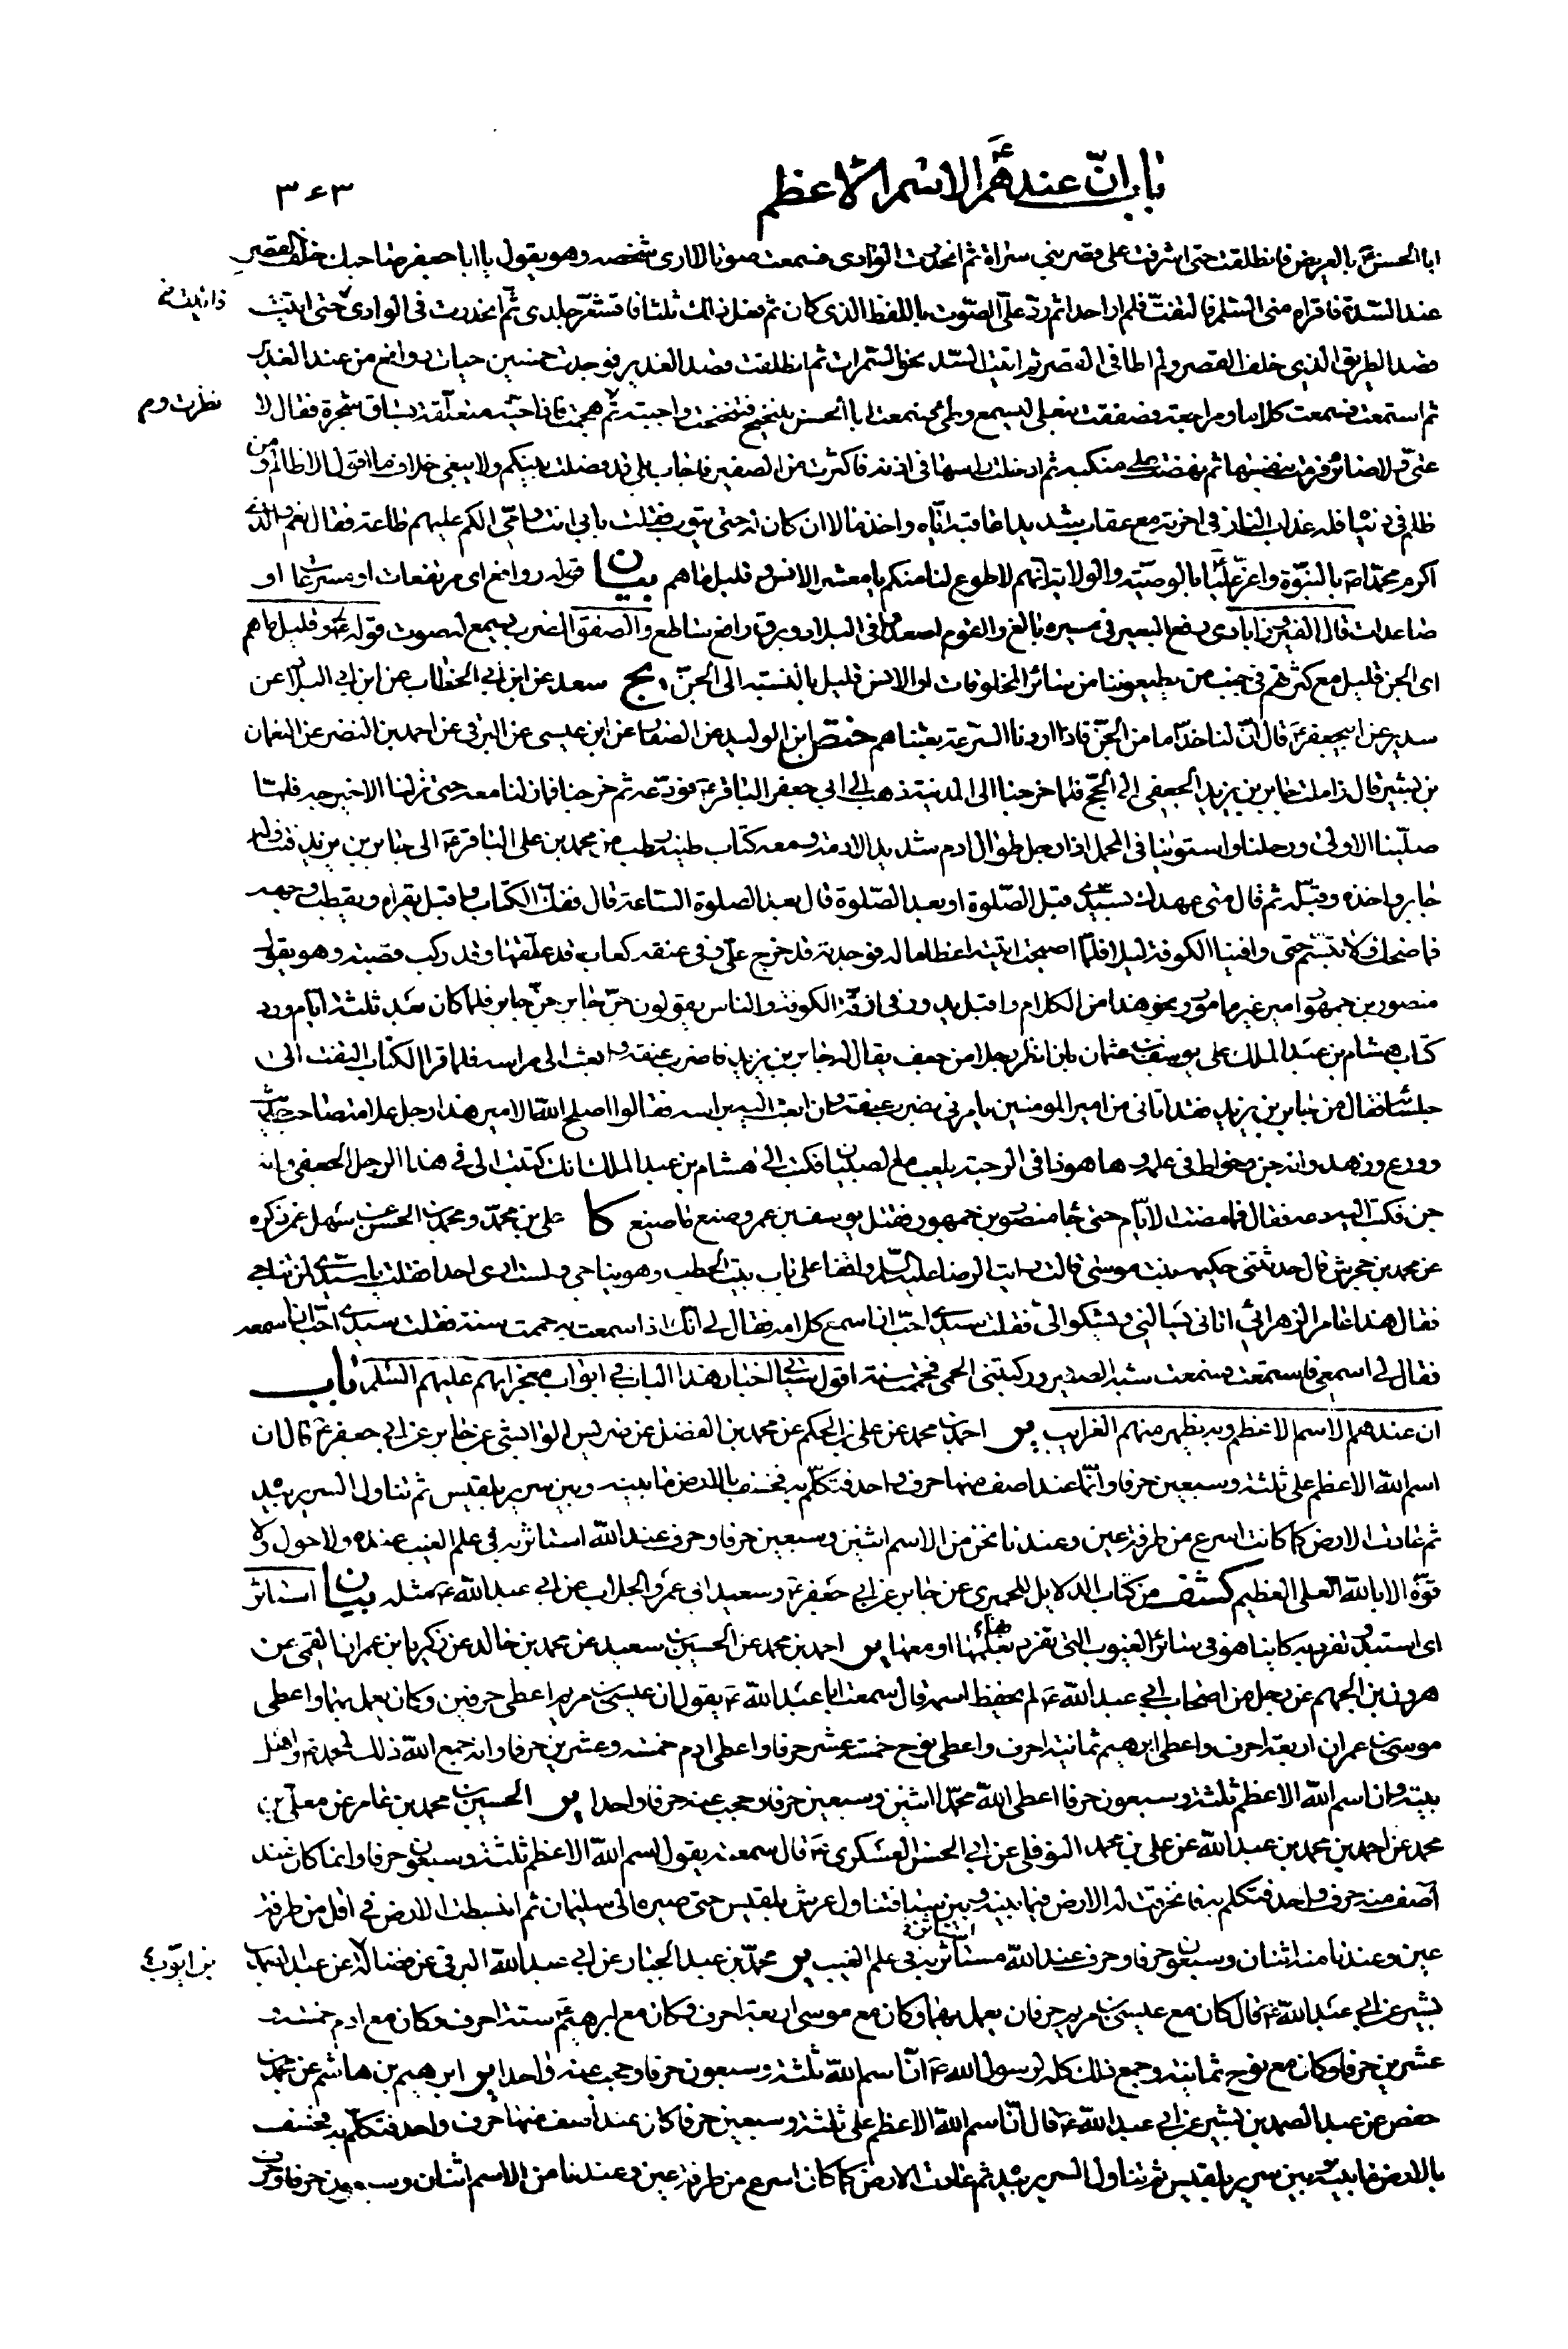 باب انّ عندهم ع الاسم الاعظم
۳۶۳
ابا الحسن ع بالعريض فانطلقت حتى اشرفت على قصر بني سراة ثم انحدرت الوادى فسمعت صوتا لا ارى شخصه وهو يقول يا ابا جعفر صاحبك خلف القصر
عند السّدة فاقراه منى السّلم فالتفتّ فلم ار احدا ثم ردّ علىّ الصّوت باللفظ الذى كان ثم فعل ذلك ثلثا فاقشعّر جلدى ثم انحدرت فى الوادى حتى اتيت
قصد الطريق الذى خلف القصر ولم اطا فى القصر ثم اتيت السّد نحو السّمرات ثم انطلقت قصد الغدير فوجدت خمسين حيات روافع من عند الغدير
نظرت وم
ثم استمعت فسمعت كلاما ومراجعة فصفقت بنعلى ليسمع وطئى فسمعت ابا الحسن يتنحنح فتنحنحت واجبته ثم هجمت فاذا حيّة متعلّقة بساق شجرة فقال لا
عتىّ ولا ضائر فرمت بنفسها ثم نهضت على منكبه ثم ادخلت راسها فى اذنه فاكثرت من الصفير فاجاب بلى قد فصلت بينكم ولا يبغى خلاف ما اقول الا ظالم ومن
ظلم فى دنياه فله عذاب النار فى اخرته مع عقاب شديد اعاقبه ايّاه واخذ مالا ان كان له حتى يتوب فقلت بابى انت وامّى الكم عليهم طاعة فقال نعم والّذى
اكرم محمّدا ص بالنبوّة واعزّ عليّا ع بالوصيّة والولاية انّهم لاطوع لنا منكم يا معشر الانس وقليل ما هم بيان قوله روافع اى مرتفعات او مسرعات او
صاعدات قال الفيروزابادى رفع البعير فى مسيره بالغ والقوم اصعدوا فى البلاد وبرق رافع ساطع والصفق الضرب يسمع له صوت قوله ع وقليل ما هم
اى الجن قليل مع كثرتهم فى جنب من يطيعوننا من سائر المخلوقات او الانس قليل بالنسبة الى الجنّ يج سعد عن ابن ابى الخطاب عن ابن ابى البلاد عن
سدير عن ابيجعفر ع قال انّ لنا خدّاما من الجنّ فاذا اردنا السّرعة بعثناهم ختص ابن الوليد عن الصفّار عن ابن عيسى عن البرقى عن احمد بن النضر عن النعمان
بن بشير قال زاملت جابر بن يزيد الجعفى الى الحّج فلما خرجنا الى المدينة ذهب الى ابى جعفر الباقر ع فودّعه ثم خرجنا فما زلنا معه حتى نزلنا الاخيرجه فلمّا
صلّينا الاولى ورحلنا واستوينا فى المحمل اذا رجل طوال ادم شديد الادمة ومعه كتاب طينه رطب من محمد بن على الباقر ع الى جابر بن يزيد فتناوله
جابر واخذه وقبّله ثم قال متى عهدك بسيّدى قبل الصّلوة او بعد الصّلوة قال بعد الصلوة الساعة قال ففكّ الكتاب واقبل يقراه ويقطب وجهه
فما ضحك ولا تبسّم حتى وافينا الكوفة ليلا فلمّا اصبحت اتيته اعظاما له فوجدته قد خرج علىّ وفى عنقه كعاب قد علّقها وقد ركب قصبة وهو يقول
منصور بن جمهور امير غير مامور ونحو هذا من الكلام واقبل يدور فى ازقّة الكوفة والناس يقولون جنّ جابر جنّ جابر فلما كان بعد ثلثة ايّام ورد
كتاب هشام بن عبد الملك على يوسف بن عثمان بان انظر رجلا من جعف يقال له جابر بن يزيد فاضرب عنقه وابعث الى براسه فلما قرا الكتاب التفت الى
جلسائه فقال من جابر بن يزيد فقد اتانى من امير المومنين يامرنى بضرب عنقه وان ابعث اليه براسه فقالوا اصلح اللّه الامير هذا رجل علامة صاحب حديث
وورع وزهد وانه جنّ وخولط فى عقله وها هو ذا فى الرحبة يلعب مع الصبيان فكتب الى هشام بن عبد الملك انك كتبت الى فى هذا الرجل الجعفى وانه
جن فكتب اليه دعه فقال فما مضت الايّام حتى جا منصور بن جمهور فقتل يوسف بن عمر وصنع ما صنع كا على بن محمّد ومحمد بن الحسن عن سهل عمن ذكره
عن محمد بن جحرش قال حدثتنى حكيمه بنت موسى قالت رايت الرضا عليه السّلم واقفا على باب بيت الحطب وهو يناجى ولست ارى احدا فقلت يا سيّدى لمن تناجى
فقال هذا عامر الزهرائى اتانى يسألنى ويشكو الىّ فقلت سيدى احّب ان اسمع كلامه فقال لى انّك اذا سمعت به حممت سنة فقلت سيدى احّب ان اسمعه
فقال لى اسمعى فاستمعت فسمعت شبه الصفير وركبتنى الحمى فحممت سنة اقول سياتى اخبار هذا الباب فى ابواب معجزاتهم عليهم السّلم باب
ان عندهم الاسم الاعظم وبه يظهر منهم الغرايب ير احمد بن محمد عن على بن الحكم عن محمد بن الفضل عن ضريس الوابشى عن جابر عن ابى جعفر ع قال ان
اسم اللّه الاعظم على ثلثة وسبعين حرفا وانّما عند اصف منها حرف واحد فتكلّم به فخسف بالارض ما بينه وبين سرير بلقيس ثم تناول السرير بيده
ثم عادت الارض كما كانت اسرع من طرفة عين وعندنا نحن من الاسم اثنين وسبعين حرفا وحرف عند اللّه استاثر به فى علم الغيب عنده ولا حول ولا
قوّة الا باللّه العلى العظيم كشف من كتاب الدلايل للحميرى عن جابر عن ابى جعفر ع وسعيد ابى عمر والجلاب عن ابى عبد اللّه ع مثله بيان استاثر
اى استبد وتفرد به كاينا هو فى سائر الغيوب التى تفرد بعلمها او معها ير احمد بن محمد عن الحسين بن سعيد عن محمد بن خالد عن زكريا بن عمران القمى عن
هرون بن الجهم عن رجل من اصحاب ابى عبد اللّه ع لم يحفظ اسمه قال سمعت ابا عبد اللّه ع يقول ان عيسى بن مريم اعطى حرفين وكان يعمل بهما واعطى
موسى بن عمران اربعة احرف واعطى ابرهيم ثمانية احرف واعطى نوح خمسة عشر حرفا واعطى ادم خمسة وعشرين حرفا وانه جمع اللّه ذلك لمحمد ص واهل
بيته وان اسم اللّه الاعظم ثلثة وسبعون حرفا اعطى اللّه محمّدا اثنين وسبعين حرفا وحجب عنه حرفا واحدا ير الحسين بن محمد بن عامر عن معلّى بن
محمد عن احمد بن محمد بن عبد اللّه عن على بن محمد النوفلى عن ابى الحسن العسكرى ع قال سمعته يقول اسم اللّه الاعظم ثلثة وسبعون حرفا وانما كان عند
آصف منه حرف واحد فتكلم به فانخرقت له الارض فيما بينه وبين سبا فتناول عرش بلقيس حتى صيره الى سليمان ثم انبسطت الارض فى اقل من طرفة
عين وعندنا منه اثنان وسبعون حرفا وحرف عند اللّه مستاثر به فى علم الغيب ير محمّد بن عبد الجبار عن ابى عبد اللّه البرقى عن فضالة عن عبد الصمد بن
بن ايّوب
بشير عن ابى عبد اللّه ع قال كان مع عيسى بن مريم حرفان يعمل بهما وكان مع موسى اربعة احرف وكان مع ابرهيم ع ستة احرف وكان مع ادم خمسة و
عشرين حرفا وكان مع نوح ثمانية وجمع ذلك كله لرسول اللّه ع انّ اسم اللّه ثلثة وسبعون حرفا وحجب عنه واحدا ير ابرهيم بن هاشم عن محمد بن
حفص عن عبد الصمد بن بشير عن ابى عبد اللّه ع قال انّ اسم اللّه الاعظم على ثلثة وسبعين حرفا كان عند آصف منها حرف واحد فتكلّم به فخسف
بالارض ما بينه وبين سرير بلقيس ثم تناول السرير بيده ثم عادت الارض كما كان اسرع من طرفة عين وعندنا من الاسم اثنان وسبعون حرفا وحرف